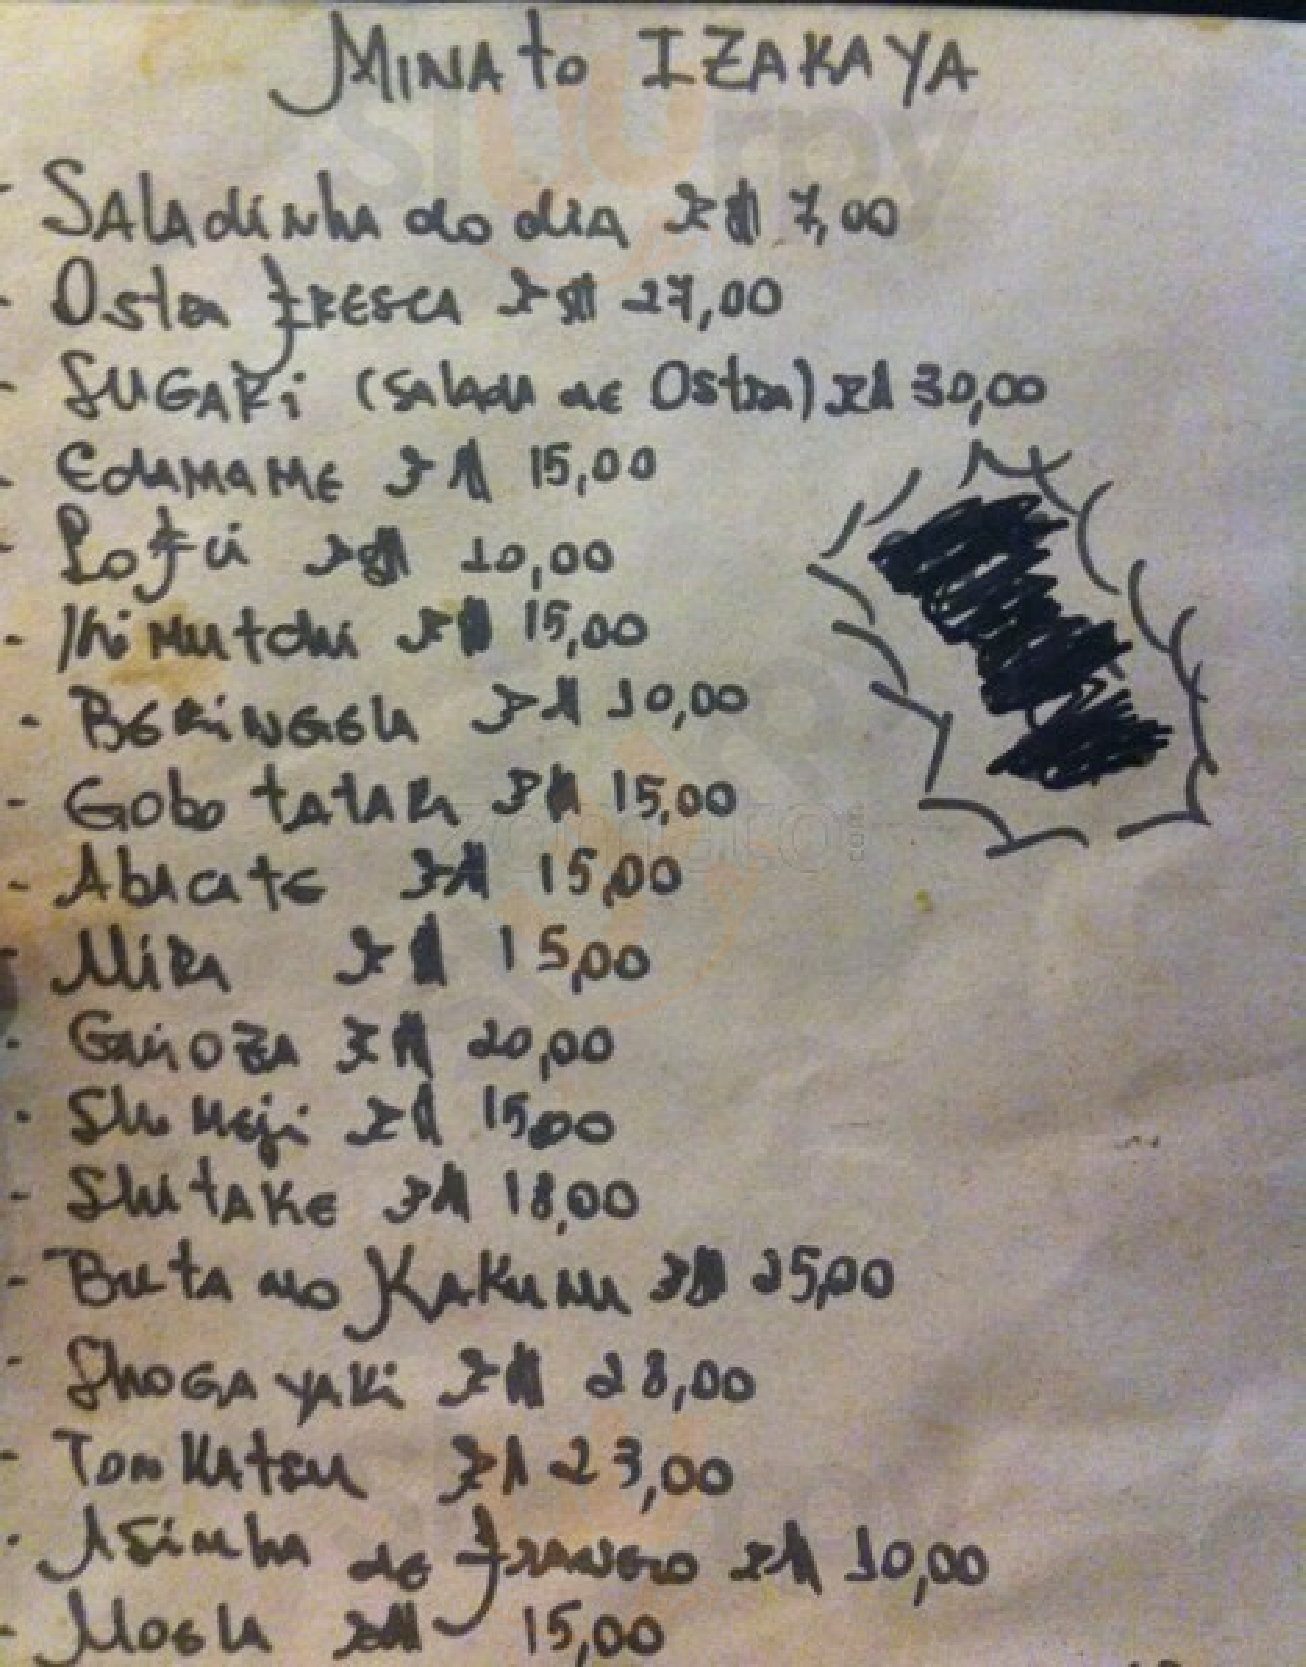 MINAto IZAKAYA
- SALAdinha do dia R$ 7,00
- Ostra fRESCA R$ 27,00
- SUGAKi (Salada de Ostra) R$ 30,00
- EdAMAME R$ 15,00
- Tofu R$ 10,00
- Kimutchi R$ 15,00
- BERiNGELA R$ 10,00
- Gobo tataki R$ 15,00
- Abacate R$ 15,00
- R$ 15,00
- GuiOZA R$ 20,00
- Shimeji R$ 15,00
- ShitAKE R$ 18,00
- Buta no KaKuni R$ 25,00
- ShoGA yaki R$ 28,00
- TonKatsu R$ 23,00
- Asinha de fRANGO R$ 10,00
- Moela R$ 15,00